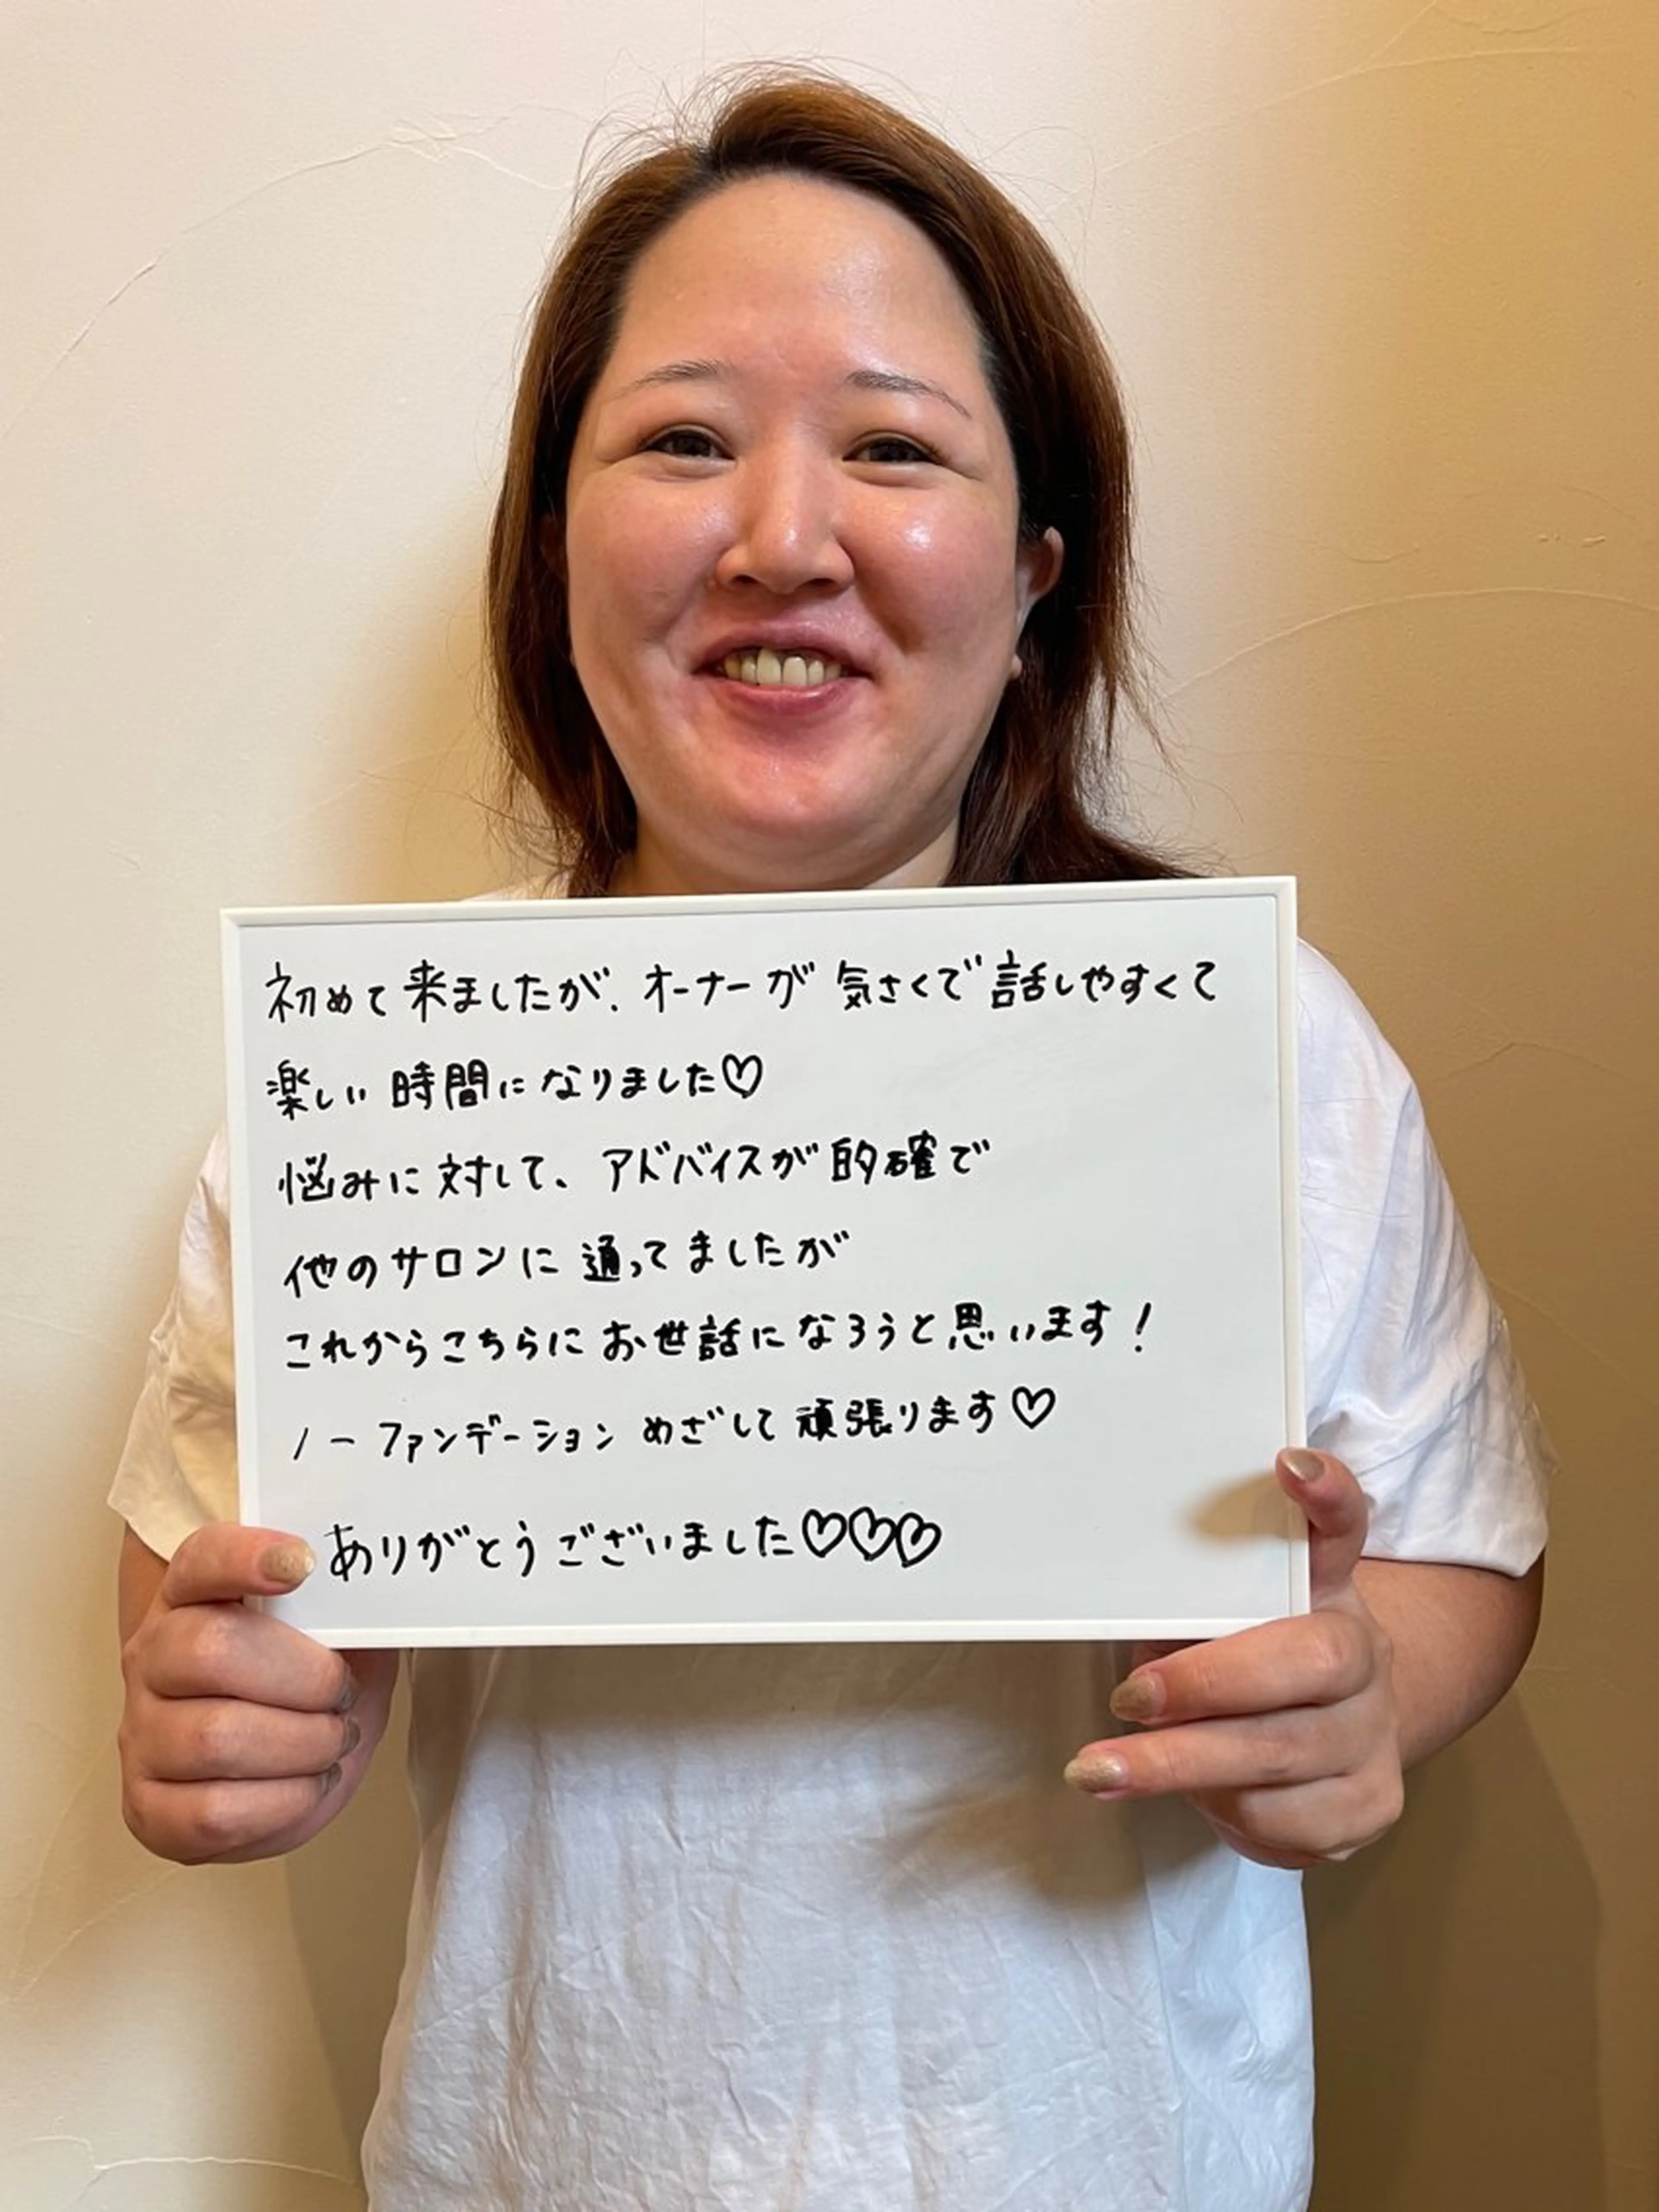 初めて来ましたが、オーナーが気さくで話しやすくて
楽しい時間になりました♡
悩みに対して、アドバイスが的確で
他のサロンに通ってましたが
これからこちらにお世話になろうと思います！
ノーファンデーションめざして頑張ります♡
ありがとうございました♡♡♡